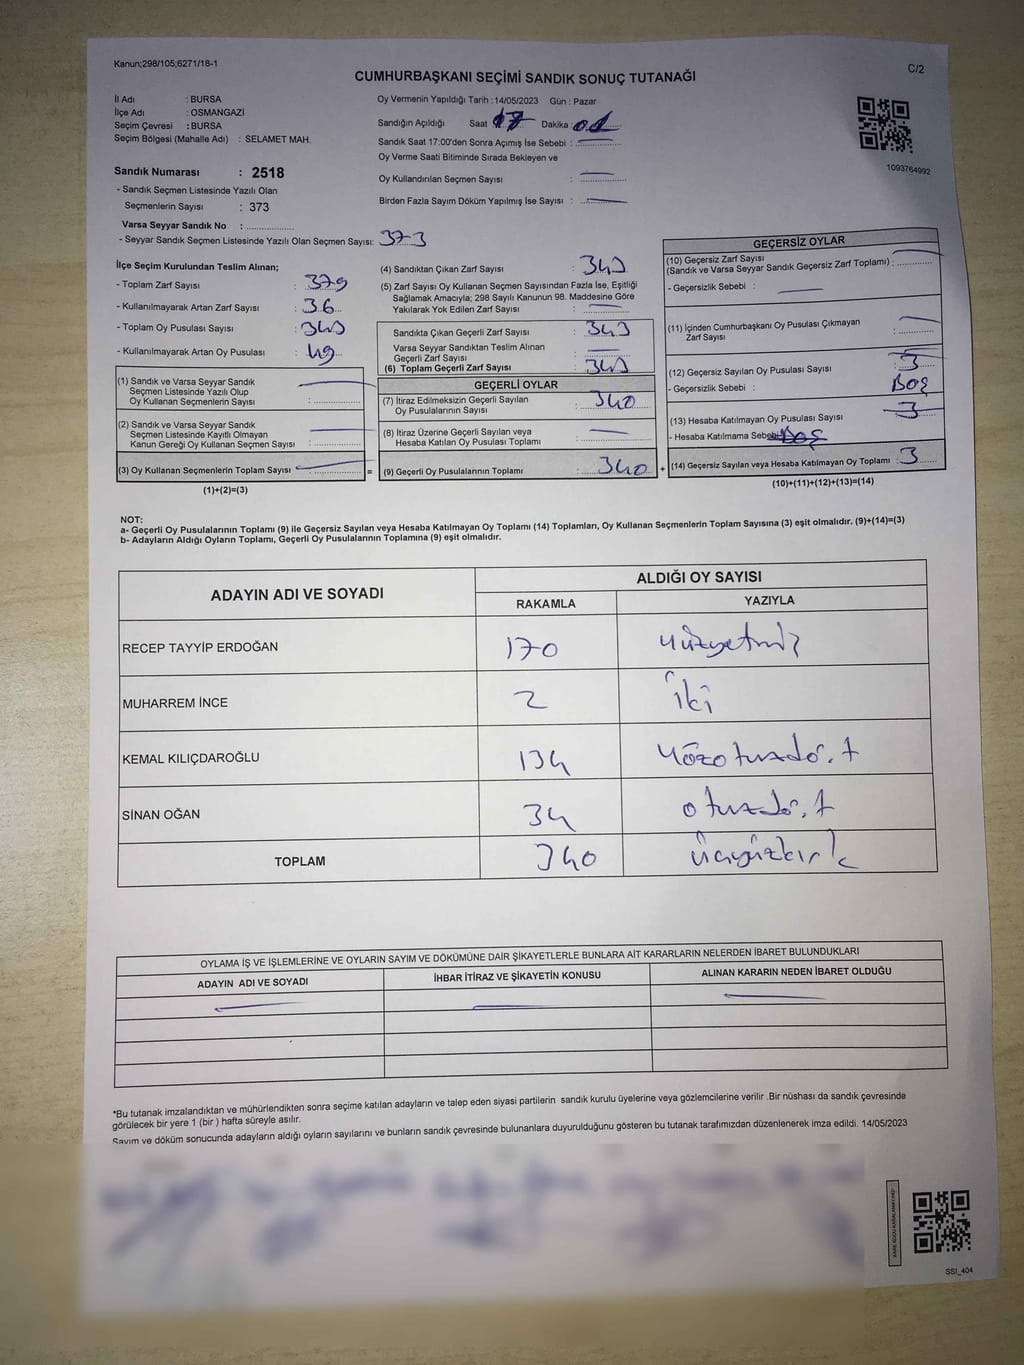 Kanun;298/105;6271/18-1
C/2
CUMHURBAŞKANI SEÇİMİ SANDIK SONUÇ TUTANAĞI
İl Adı : BURSA
İlçe Adı : OSMANGAZİ
Seçim Çevresi : BURSA
Seçim Bölgesi (Mahalle Adı) : SELAMET MAH.
Oy Vermenin Yapıldığı Tarih :14/05/2023 Gün : Pazar
Sandığın Açıldığı Saat 17 Dakika : 01
Sandık Saat 17:00'den Sonra Açımış İse Sebebi :
Oy Verme Saati Bitiminde Sırada Bekleyen ve
Oy Kullandırılan Seçmen Sayısı :
Birden Fazla Sayım Döküm Yapılmış İse Sayısı :
1093764992
Sandık Numarası : 2518
- Sandık Seçmen Listesinde Yazılı Olan
Seçmenlerin Sayısı : 373
Varsa Seyyar Sandık No :
- Seyyar Sandık Seçmen Listesinde Yazılı Olan Seçmen Sayısı: 373
İlçe Seçim Kurulundan Teslim Alınan;
- Toplam Zarf Sayısı : 379
- Kullanılmayarak Artan Zarf Sayısı : 36
- Toplam Oy Pusulası Sayısı : 343
- Kullanılmayarak Artan Oy Pusulası : 49
(1) Sandık ve Varsa Seyyar Sandık
Seçmen Listesinde Yazılı Olup
Oy Kullanan Seçmenlerin Sayısı :
(2) Sandık ve Varsa Seyyar Sandık
Seçmen Listesinde Kayıtlı Olmayan
Kanun Gereği Oy Kullanan Seçmen Sayısı :
(3) Oy Kullanan Seçmenlerin Toplam Sayısı :
(1)+(2)=(3)
(4) Sandıktan Çıkan Zarf Sayısı : 343
(5) Zarf Sayısı Oy Kullanan Seçmen Sayısından Fazla İse, Eşitliği
Sağlamak Amacıyla; 298 Sayılı Kanunun 98. Maddesine Göre
Yakılarak Yok Edilen Zarf Sayısı :
Sandıkta Çıkan Geçerli Zarf Sayısı : 343
Varsa Seyyar Sandıktan Teslim Alınan
Geçerli Zarf Sayısı :
(6) Toplam Geçerli Zarf Sayısı : 343
GEÇERLİ OYLAR
(7) İtiraz Edilmeksizin Geçerli Sayılan
Oy Pusulalarının Sayısı : 340
(8) İtiraz Üzerine Geçerli Sayılan veya
Hesaba Katılan Oy Pusulası Toplamı :
= (9) Geçerli Oy Pusulalarının Toplamı : 340 +
GEÇERSİZ OYLAR
(10) Geçersiz Zarf Sayısı
(Sandık ve Varsa Seyyar Sandık Geçersiz Zarf Toplamı) :
- Geçersizlik Sebebi :
(11) İçinden Cumhurbaşkanı Oy Pusulası Çıkmayan
Zarf Sayısı :
(12) Geçersiz Sayılan Oy Pusulası Sayısı : 3
- Geçersizlik Sebebi : Boş
(13) Hesaba Katılmayan Oy Pusulası Sayısı : 3
- Hesaba Katılmama Sebebi: Boş
(14) Geçersiz Sayılan veya Hesaba Katılmayan Oy Toplamı : 3
(10)+(11)+(12)+(13)=(14)
NOT:
a- Geçerli Oy Pusulalarının Toplamı (9) ile Geçersiz Sayılan veya Hesaba Katılmayan Oy Toplamı (14) Toplamları, Oy Kullanan Seçmenlerin Toplam Sayısına (3) eşit olmalıdır. (9)+(14)=(3)
b- Adayların Aldığı Oyların Toplamı, Geçerli Oy Pusulalarının Toplamına (9) eşit olmalıdır.
ADAYIN ADI VE SOYADI
ALDIĞI OY SAYISI
RAKAMLA YAZIYLA
RECEP TAYYİP ERDOĞAN 170 yüzyetmiş
MUHARREM İNCE 2 iki
KEMAL KILIÇDAROĞLU 134 yüzotuzdört
SİNAN OĞAN 34 otuzdört
TOPLAM 340 üçyüzkırk
OYLAMA İŞ VE İŞLEMLERİNE VE OYLARIN SAYIM VE DÖKÜMÜNE DAİR ŞİKAYETLERLE BUNLARA AİT KARARLARIN NELERDEN İBARET BULUNDUKLARI
ADAYIN ADI VE SOYADI İHBAR İTİRAZ VE ŞİKAYETİN KONUSU ALINAN KARARIN NEDEN İBARET OLDUĞU
*Bu tutanak imzalandıktan ve mühürlendikten sonra seçime katılan adayların ve talep eden siyasi partilerin sandık kurulu üyelerine veya gözlemcilerine verilir .Bir nüshası da sandık çevresinde
görülecek bir yere 1 (bir ) hafta süreyle asılır.
Sayım ve döküm sonucunda adayların aldığı oyların sayılarını ve bunların sandık çevresinde bulunanlara duyurulduğunu gösteren bu tutanak tarafımızdan düzenlenerek imza edildi. 14/05/2023
SSI_404